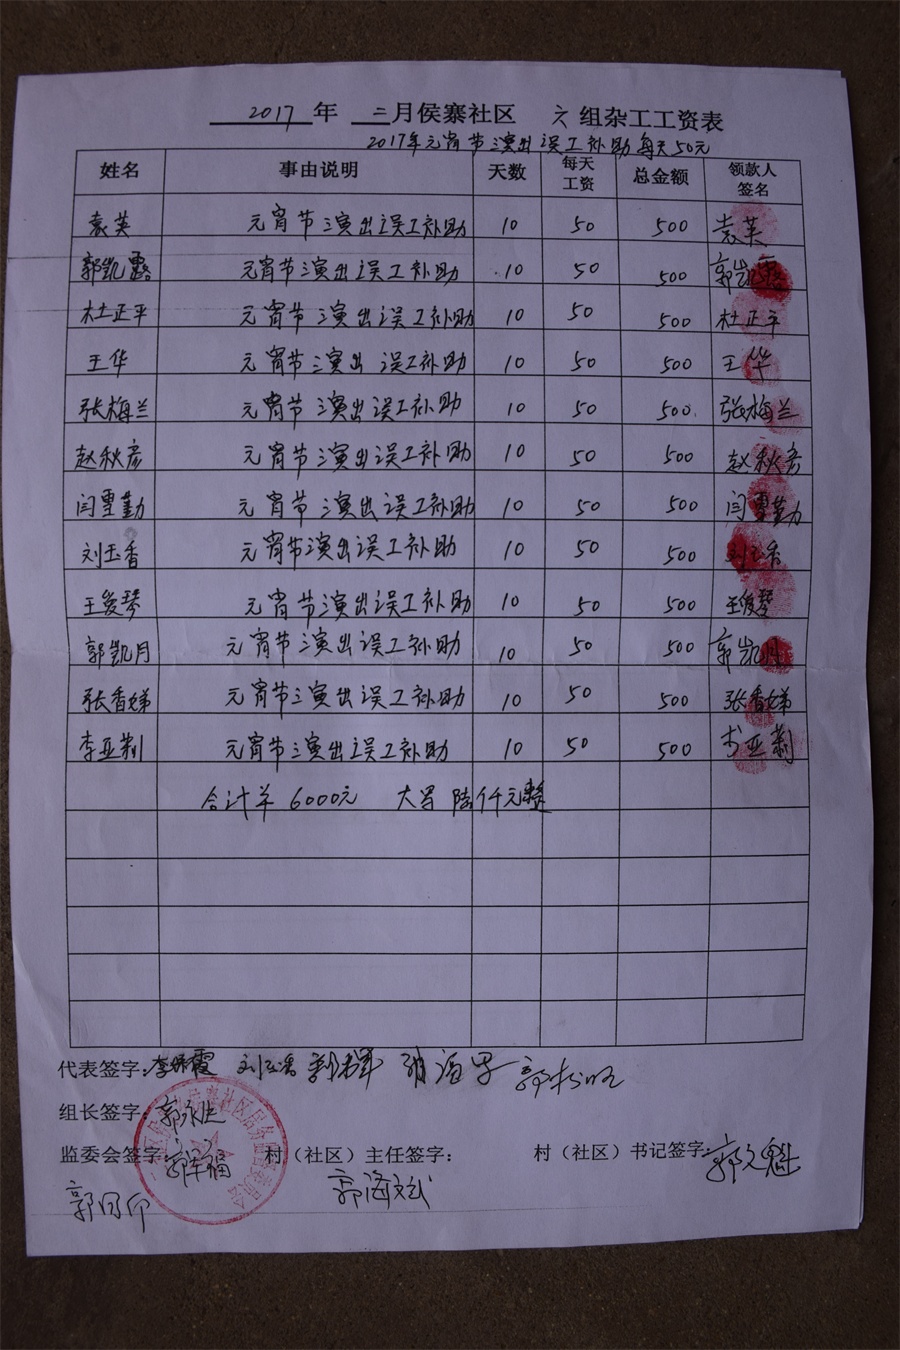 2017 年 二月侯寨社区 六 组杂工工资表
2017年元宵节演出误工补助每天50元
姓名 事由说明 天数 每天工资 总金额 领款人签名
袁芙 元宵节演出误工补助 10 50 500 袁芙
郭凯露 元宵节演出误工补助 10 50 500 郭凯露
杜正平 元宵节演出误工补助 10 50 500 杜正平
王华 元宵节演出误工补助 10 50 500 王华
张梅兰 元宵节演出误工补助 10 50 500 张梅兰
赵秋彦 元宵节演出误工补助 10 50 500 赵秋彦
闫雪勤 元宵节演出误工补助 10 50 500 闫雪勤
刘玉香 元宵节演出误工补助 10 50 500 刘玉香
王俊琴 元宵节演出误工补助 10 50 500 王俊琴
郭凯月 元宵节演出误工补助 10 50 500 郭凯月
张香娣 元宵节演出误工补助 10 50 500 张香娣
李亚利 元宵节演出误工补助 10 50 500 李亚利
合计半 6000元 大写 陆仟元整
代表签字:
组长签字:
监委会签字: 村（社区）主任签字: 村（社区）书记签字:
郭海斌